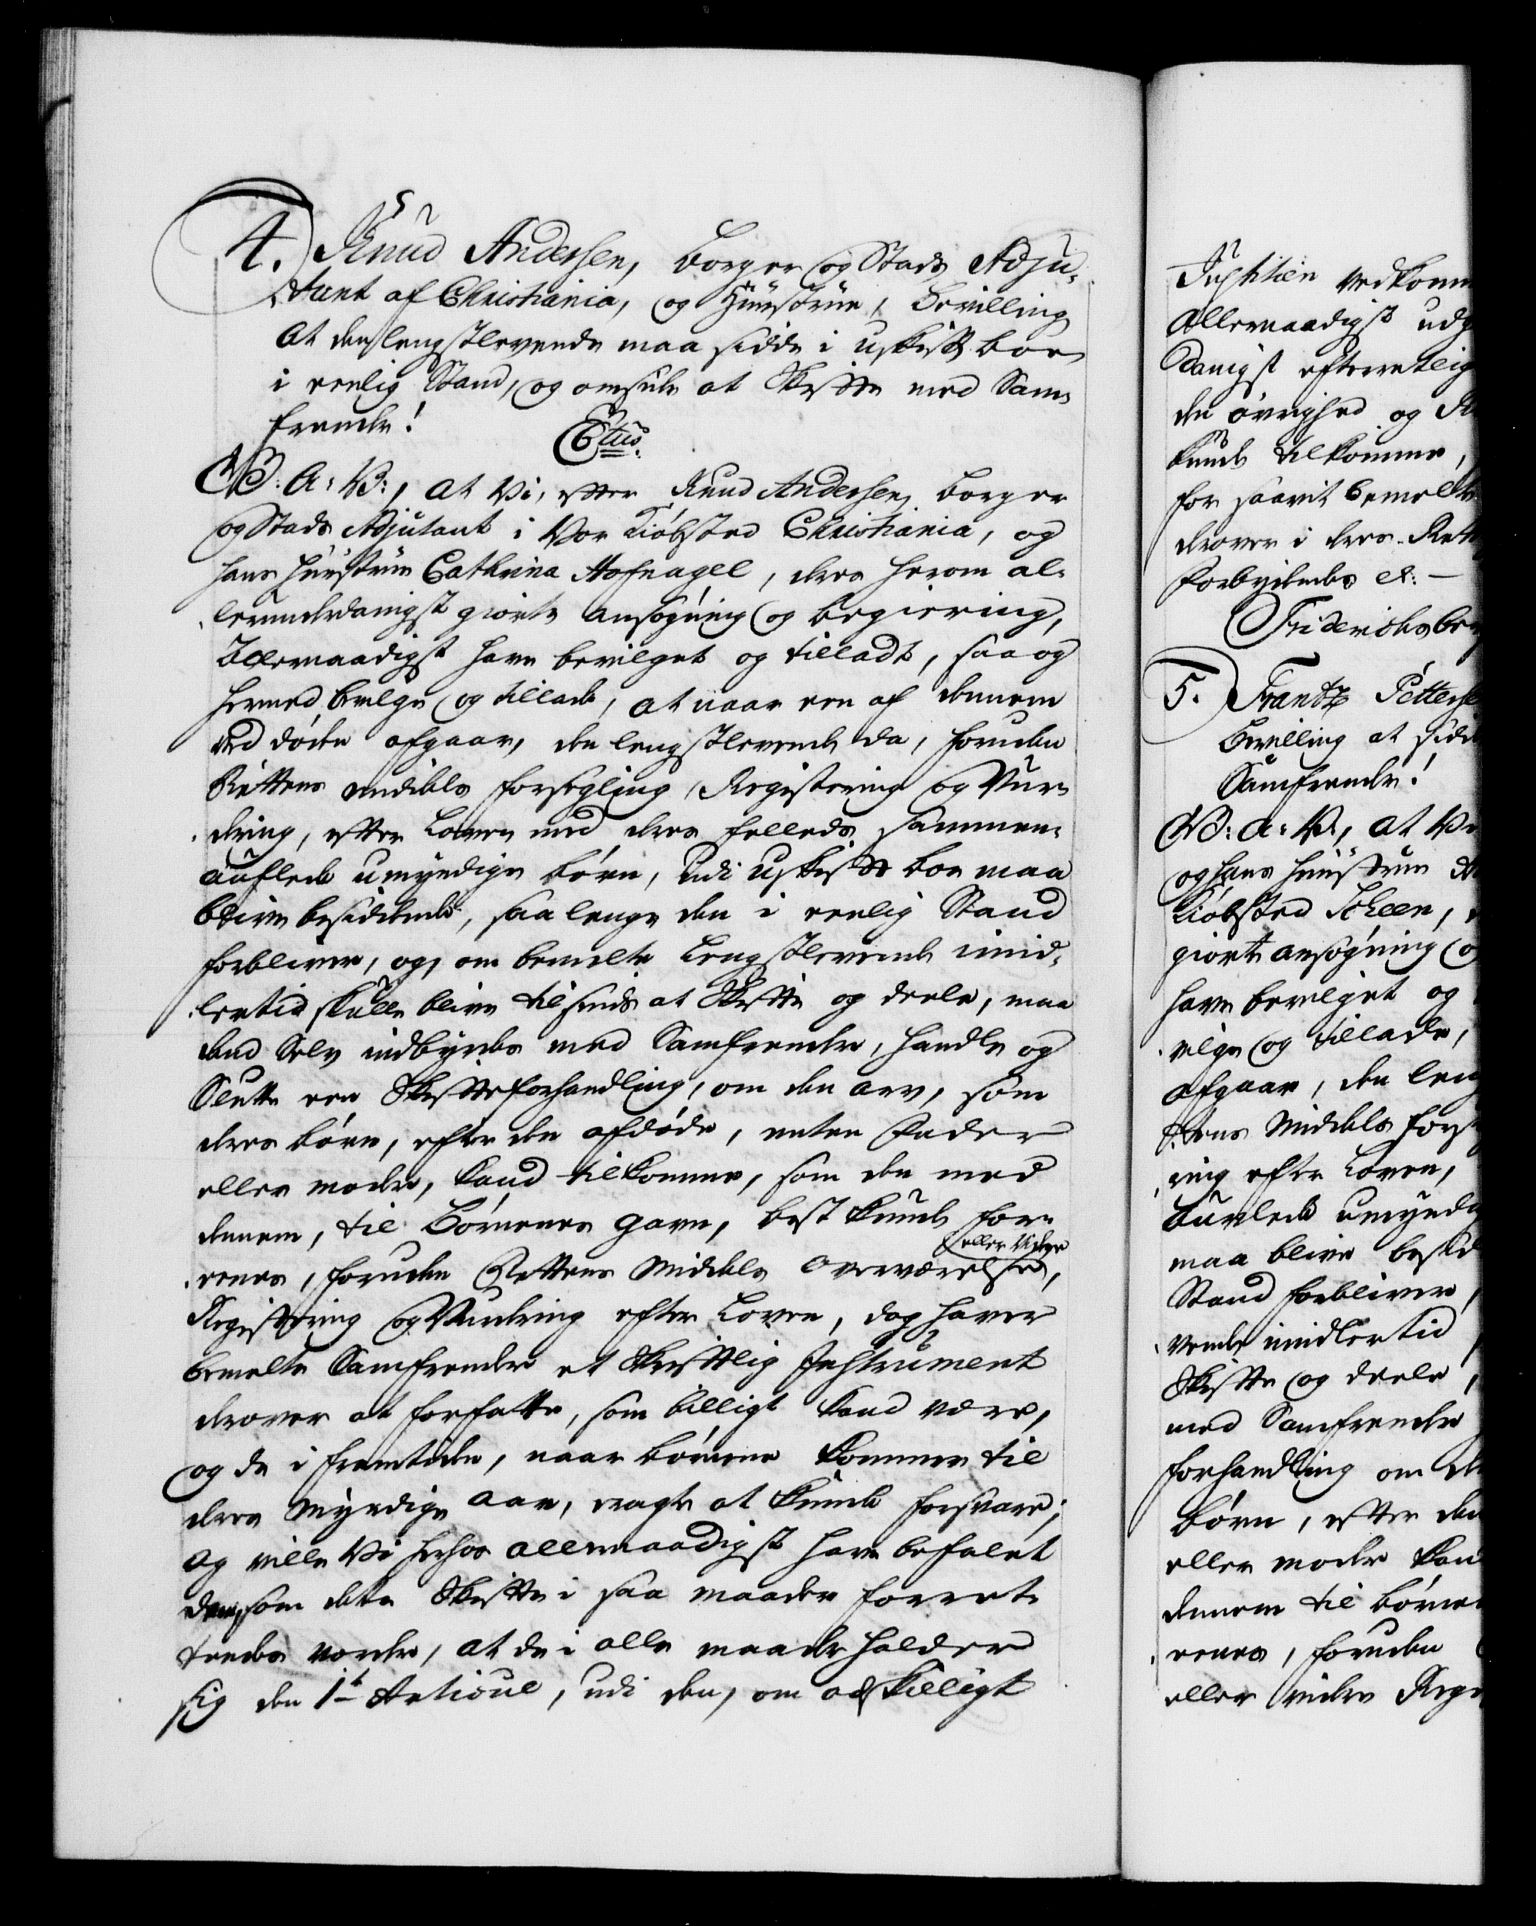 4. Knud Andersen, borger og Stads Adju-
tant af Christiania, og Hüustrüe, Bevilling
at den lengstlevende maa sidde i uskift boe
i eenlig Stand, og omsider at Skifte med Sam-
frender!
Ctus.
G: A: V:, at Vi, efter Knud Andersen, borger
og Stads Adjutant i Vor Kiöbsted Christiania, og
hans Hüustrüe Cathrina Hofnagel, deres herom al-
lerunderdanigst giorte ansøgning og begiering,
Allernaadigst have bevilget og tilladt, saa og
hermed bevilge og tillade, at naar een af dennem
ved døden afgaar, den lengstlevende da, foruden
Rettens middels forsegling, Registering og Vur-
dering, efter Loven med deres felleds sammen-
auflede umyndige børn, udi uskifte boe maa
blive besiddende, saalenge den i eenlig Stand
forbliver, og, om bemelte Lengstlevende imid-
lertid skulle blive tilsinds at Skifte og deele, maa
dend Selv indbyrdes med Samfrender, handle og
Slutte een Skifteforhandling, om den arv, som
deres børn, efter den afdøde, enten Fader
eller moder, kand tilkomme, som den med
dennem, til Børnenes gavn, best kunde for-
eenes, foruden Rettens Middels overværelse, eller Videre
Registering og Vurdering efter Loven, dog haver
bemelte Samfrender et Skriftlig Instrument
derover at forfatte, som billigt kand være,
og de i fremtiden, naar börnene kommer til
deres Myndige aar, eragte at kunde forsvare;
og ville Vi herhos allernaadigst have befalet
dem, som dette Skifte i saa maader forret-
tendes vorder, at de i alle maader holder
sig den 1te Articul, udi den, om adskilligt
Justitien vedkomm
Allernaadigst udg
danigst efterrettelig
den øvrighed og R
kunde tilkomme,
for saavit bemelte
derover i deres Rett
Forbydendes etc: —
Friderichsber
5. Frantz Petterse
Bevilling at sidde
Samfrender!
G: A: V:, at Vi
og hans Hüustrue A
Kiöbsted Scheen,
giorte ansøgning o
have bevilget og
vilge og tillade,
afgaar, den leng
ttens Middels forse
ring efter Loven,
auvlede umyndig
maa blive besid
Stand forbliver,
vende imidlertid
Skifte og deele,
med Samfrender
forhandling om de
børn, efter den
eller moder kan
dennem til børne
eenes, foruden
eller videre Regi